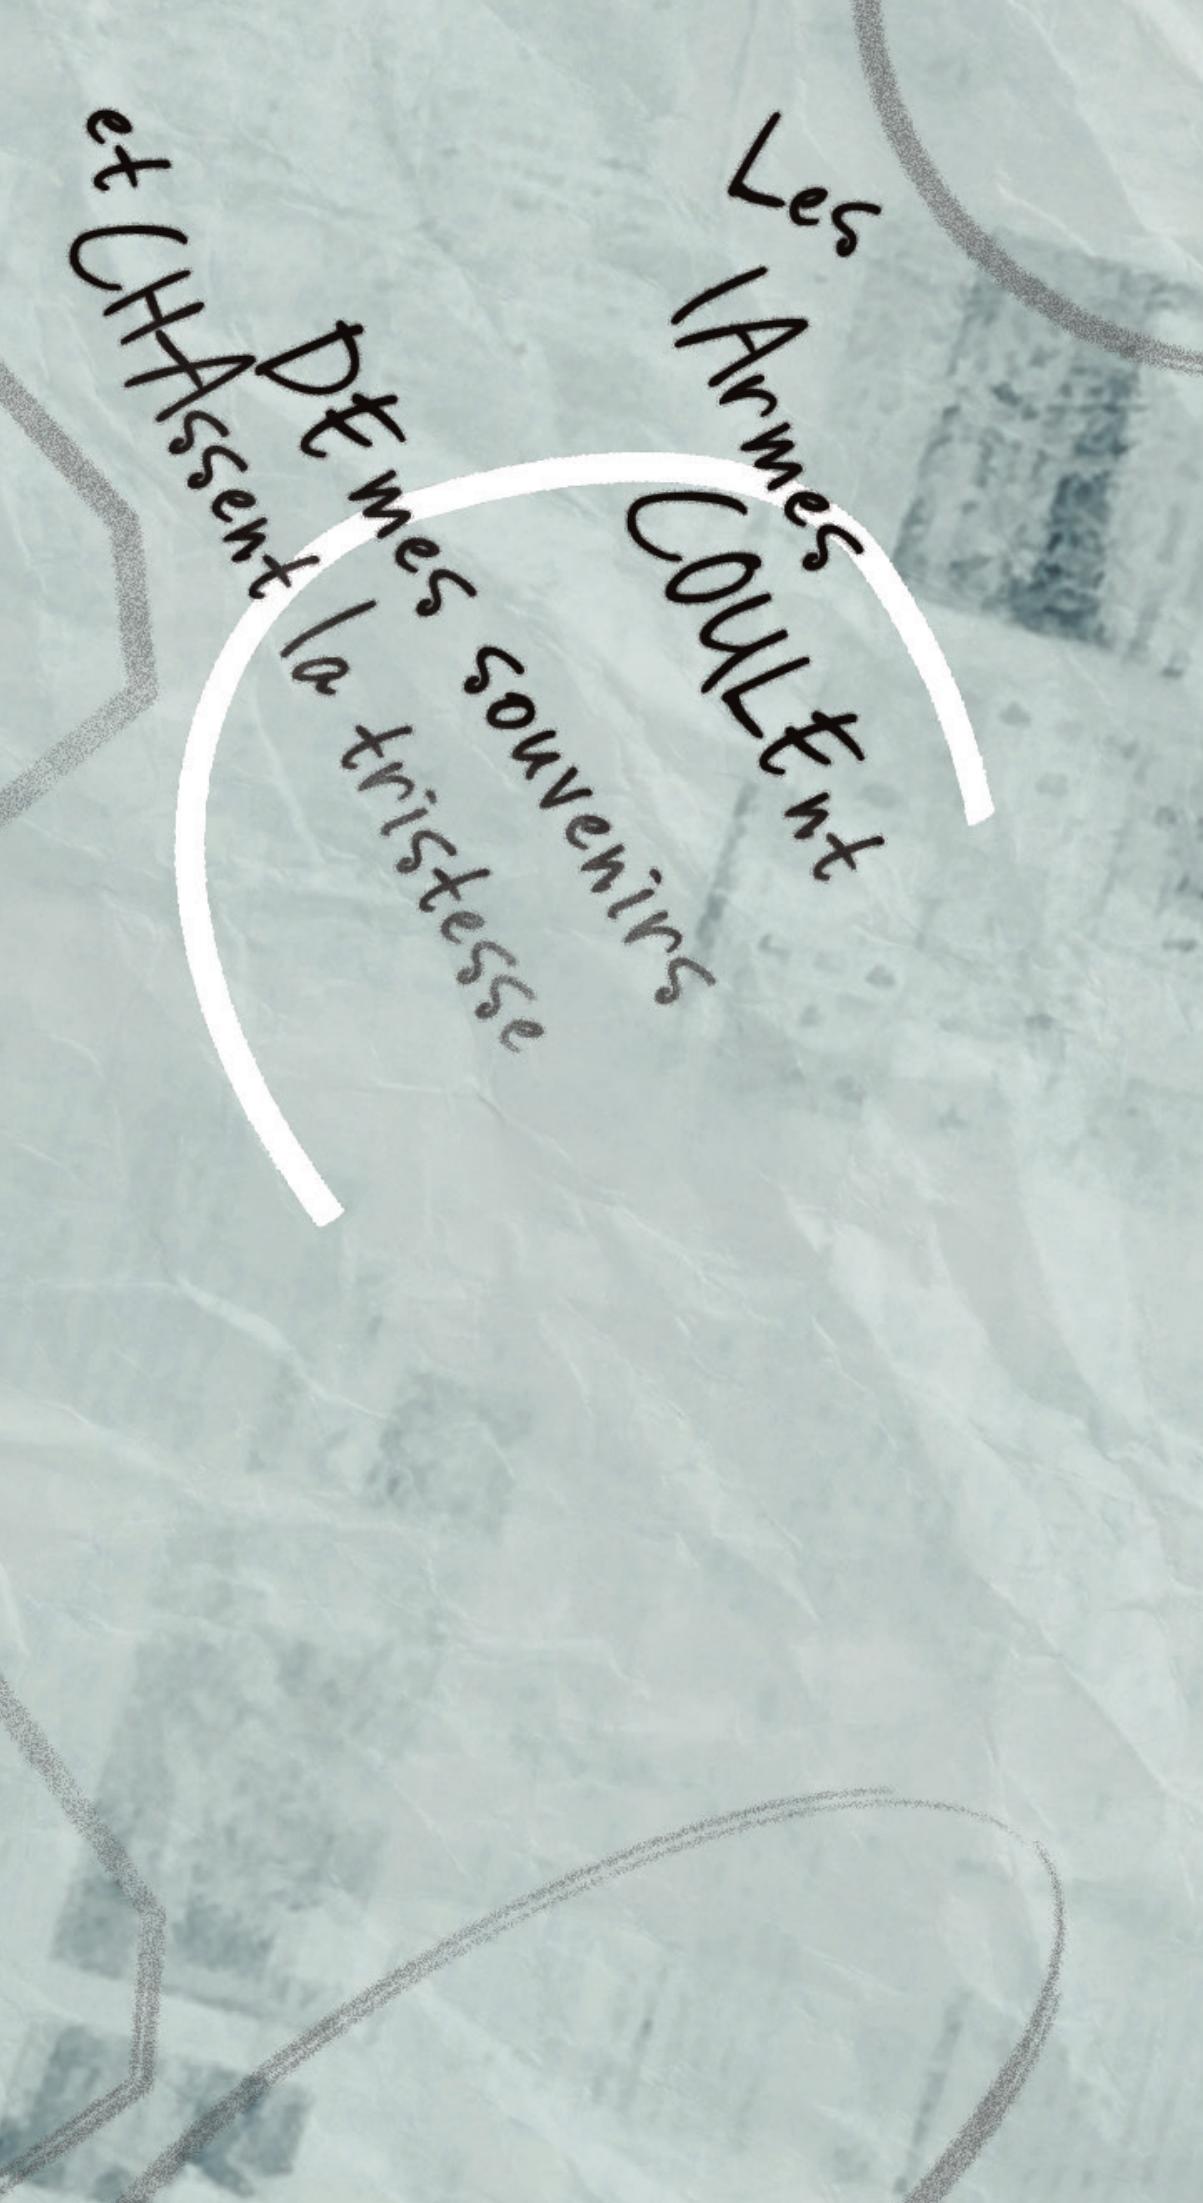 Les lArmes
COULEnt
DE mes souvenirs
et CHAssent la tristesse